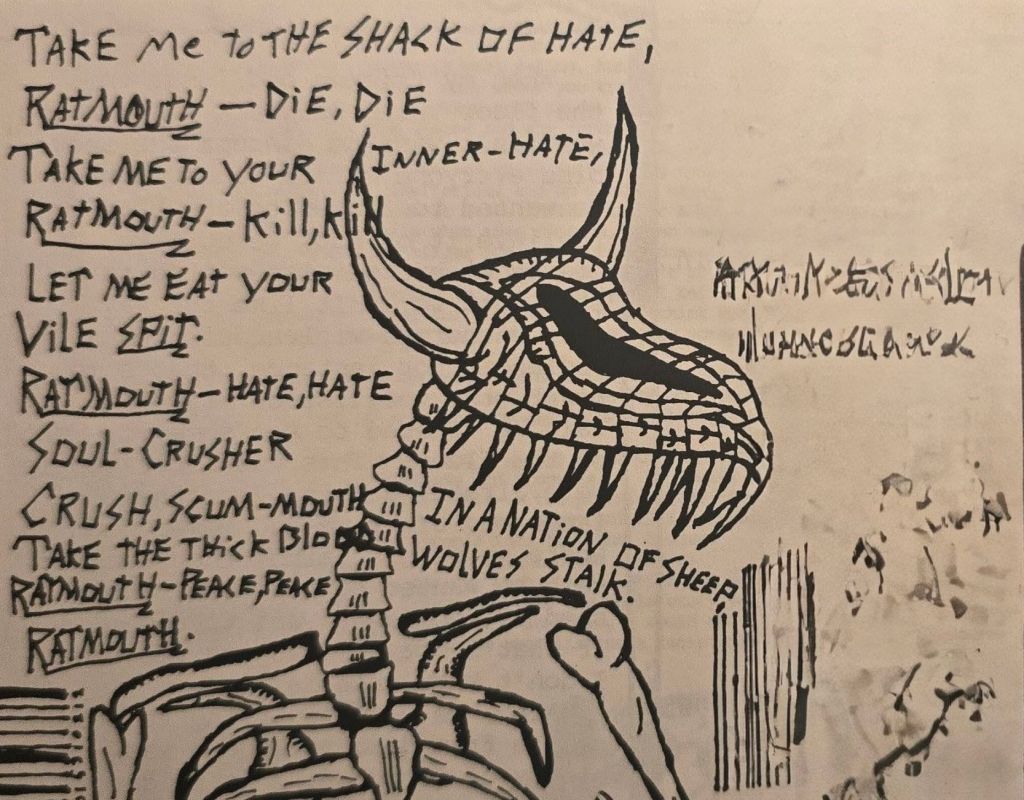 TAKE Me to THE SHACK OF HATE,
RATMOUTH – DiE, DiE
TAKE ME TO YOUR INNER-HATE,
RATMOUTH – kill, kill
LET ME EAT YOUR
VILE SPIT.
RATMOUTH – HATE, HATE
SOUL-CRUSHER
CRUSH, SCUM-MOUTH
TAKE THE THICK BLOOD
RATMOUTH – PEACE, PEACE
RATMOUTH.
IN A NATION OF SHEEP,
WOLVES STALK.